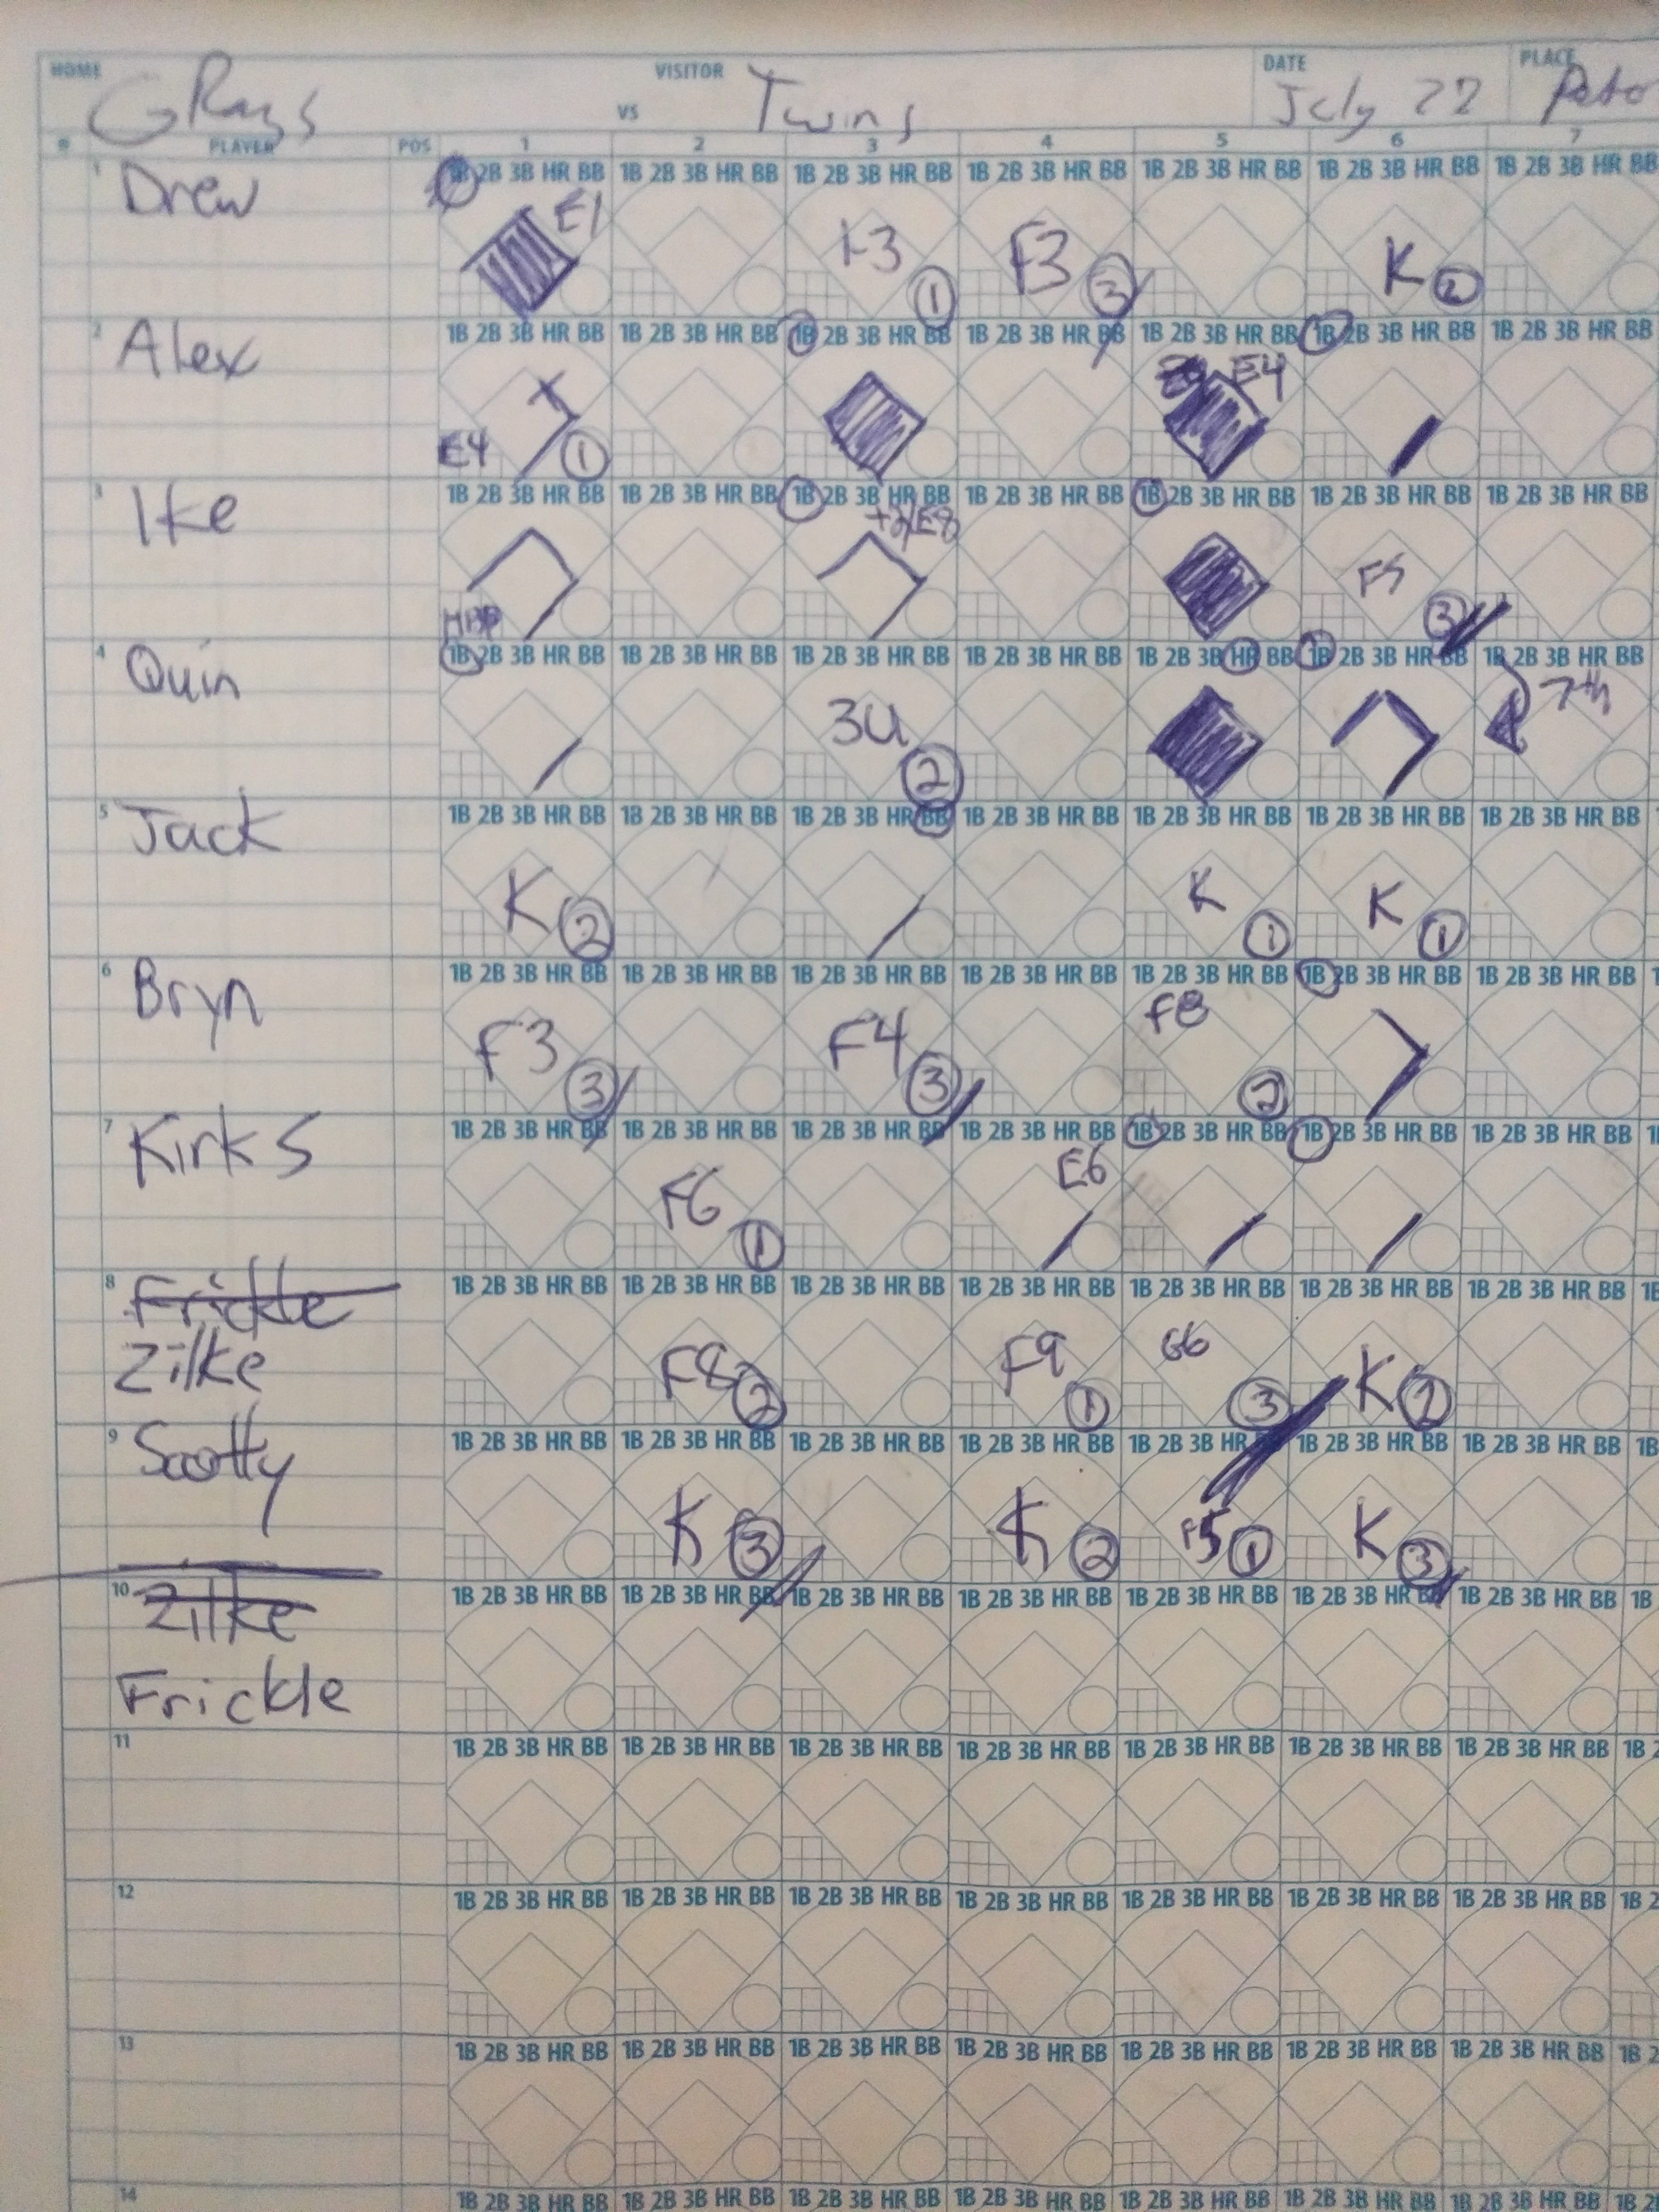 HOME GRays VS VISITOR Twins DATE July 22 PLACE
# PLAYER POS 1 2 3 4 5 6 7
1 1B 2B 3B HR BB 1B 2B 3B HR BB 1B 2B 3B HR BB 1B 2B 3B HR BB 1B 2B 3B HR BB 1B 2B 3B HR BB 1B 2B 3B HR BB
Drew E1 F3 1 F3 3 K 2
2 1B 2B 3B HR BB 1B 2B 3B HR BB 1B 2B 3B HR BB 1B 2B 3B HR BB 1B 2B 3B HR BB 1B 2B 3B HR BB 1B 2B 3B HR BB
Alex E4 1 E4
3 1B 2B 3B HR BB 1B 2B 3B HR BB 1B 2B 3B HR BB 1B 2B 3B HR BB 1B 2B 3B HR BB 1B 2B 3B HR BB 1B 2B 3B HR BB
Ike HBP E8 F5 3
4 1B 2B 3B HR BB 1B 2B 3B HR BB 1B 2B 3B HR BB 1B 2B 3B HR BB 1B 2B 3B HR BB 1B 2B 3B HR BB 1B 2B 3B HR BB
Quin 3U 2 7th
5 1B 2B 3B HR BB 1B 2B 3B HR BB 1B 2B 3B HR BB 1B 2B 3B HR BB 1B 2B 3B HR BB 1B 2B 3B HR BB 1B 2B 3B HR BB
Jack K 2 K 1 K 1
6 1B 2B 3B HR BB 1B 2B 3B HR BB 1B 2B 3B HR BB 1B 2B 3B HR BB 1B 2B 3B HR BB 1B 2B 3B HR BB 1B 2B 3B HR BB
Bryn F3 3 F4 3 F8 2
7 1B 2B 3B HR BB 1B 2B 3B HR BB 1B 2B 3B HR BB 1B 2B 3B HR BB 1B 2B 3B HR BB 1B 2B 3B HR BB 1B 2B 3B HR BB
Kirk S F6 1 E6
8 1B 2B 3B HR BB 1B 2B 3B HR BB 1B 2B 3B HR BB 1B 2B 3B HR BB 1B 2B 3B HR BB 1B 2B 3B HR BB 1B 2B 3B HR BB
Frickle
Zilke F8 2 F9 1 G6 3 K 2
9 1B 2B 3B HR BB 1B 2B 3B HR BB 1B 2B 3B HR BB 1B 2B 3B HR BB 1B 2B 3B HR BB 1B 2B 3B HR BB 1B 2B 3B HR BB
Scotty K 3 K 2 F5 1 K 3
10 1B 2B 3B HR BB 1B 2B 3B HR BB 1B 2B 3B HR BB 1B 2B 3B HR BB 1B 2B 3B HR BB 1B 2B 3B HR BB 1B 2B 3B HR BB 1B
Zilke
Frickle
11 1B 2B 3B HR BB 1B 2B 3B HR BB 1B 2B 3B HR BB 1B 2B 3B HR BB 1B 2B 3B HR BB 1B 2B 3B HR BB 1B 2B 3B HR BB 1B 2
12 1B 2B 3B HR BB 1B 2B 3B HR BB 1B 2B 3B HR BB 1B 2B 3B HR BB 1B 2B 3B HR BB 1B 2B 3B HR BB 1B 2B 3B HR BB 1B 2
13 1B 2B 3B HR BB 1B 2B 3B HR BB 1B 2B 3B HR BB 1B 2B 3B HR BB 1B 2B 3B HR BB 1B 2B 3B HR BB 1B 2B 3B HR BB 1B 2
14 1B 2B 3B HR BB 1B 2B 3B HR BB 1B 2B 3B HR BB 1B 2B 3B HR BB 1B 2B 3B HR BB 1B 2B 3B HR BB 1B 2B 3B HR BB 1B 2